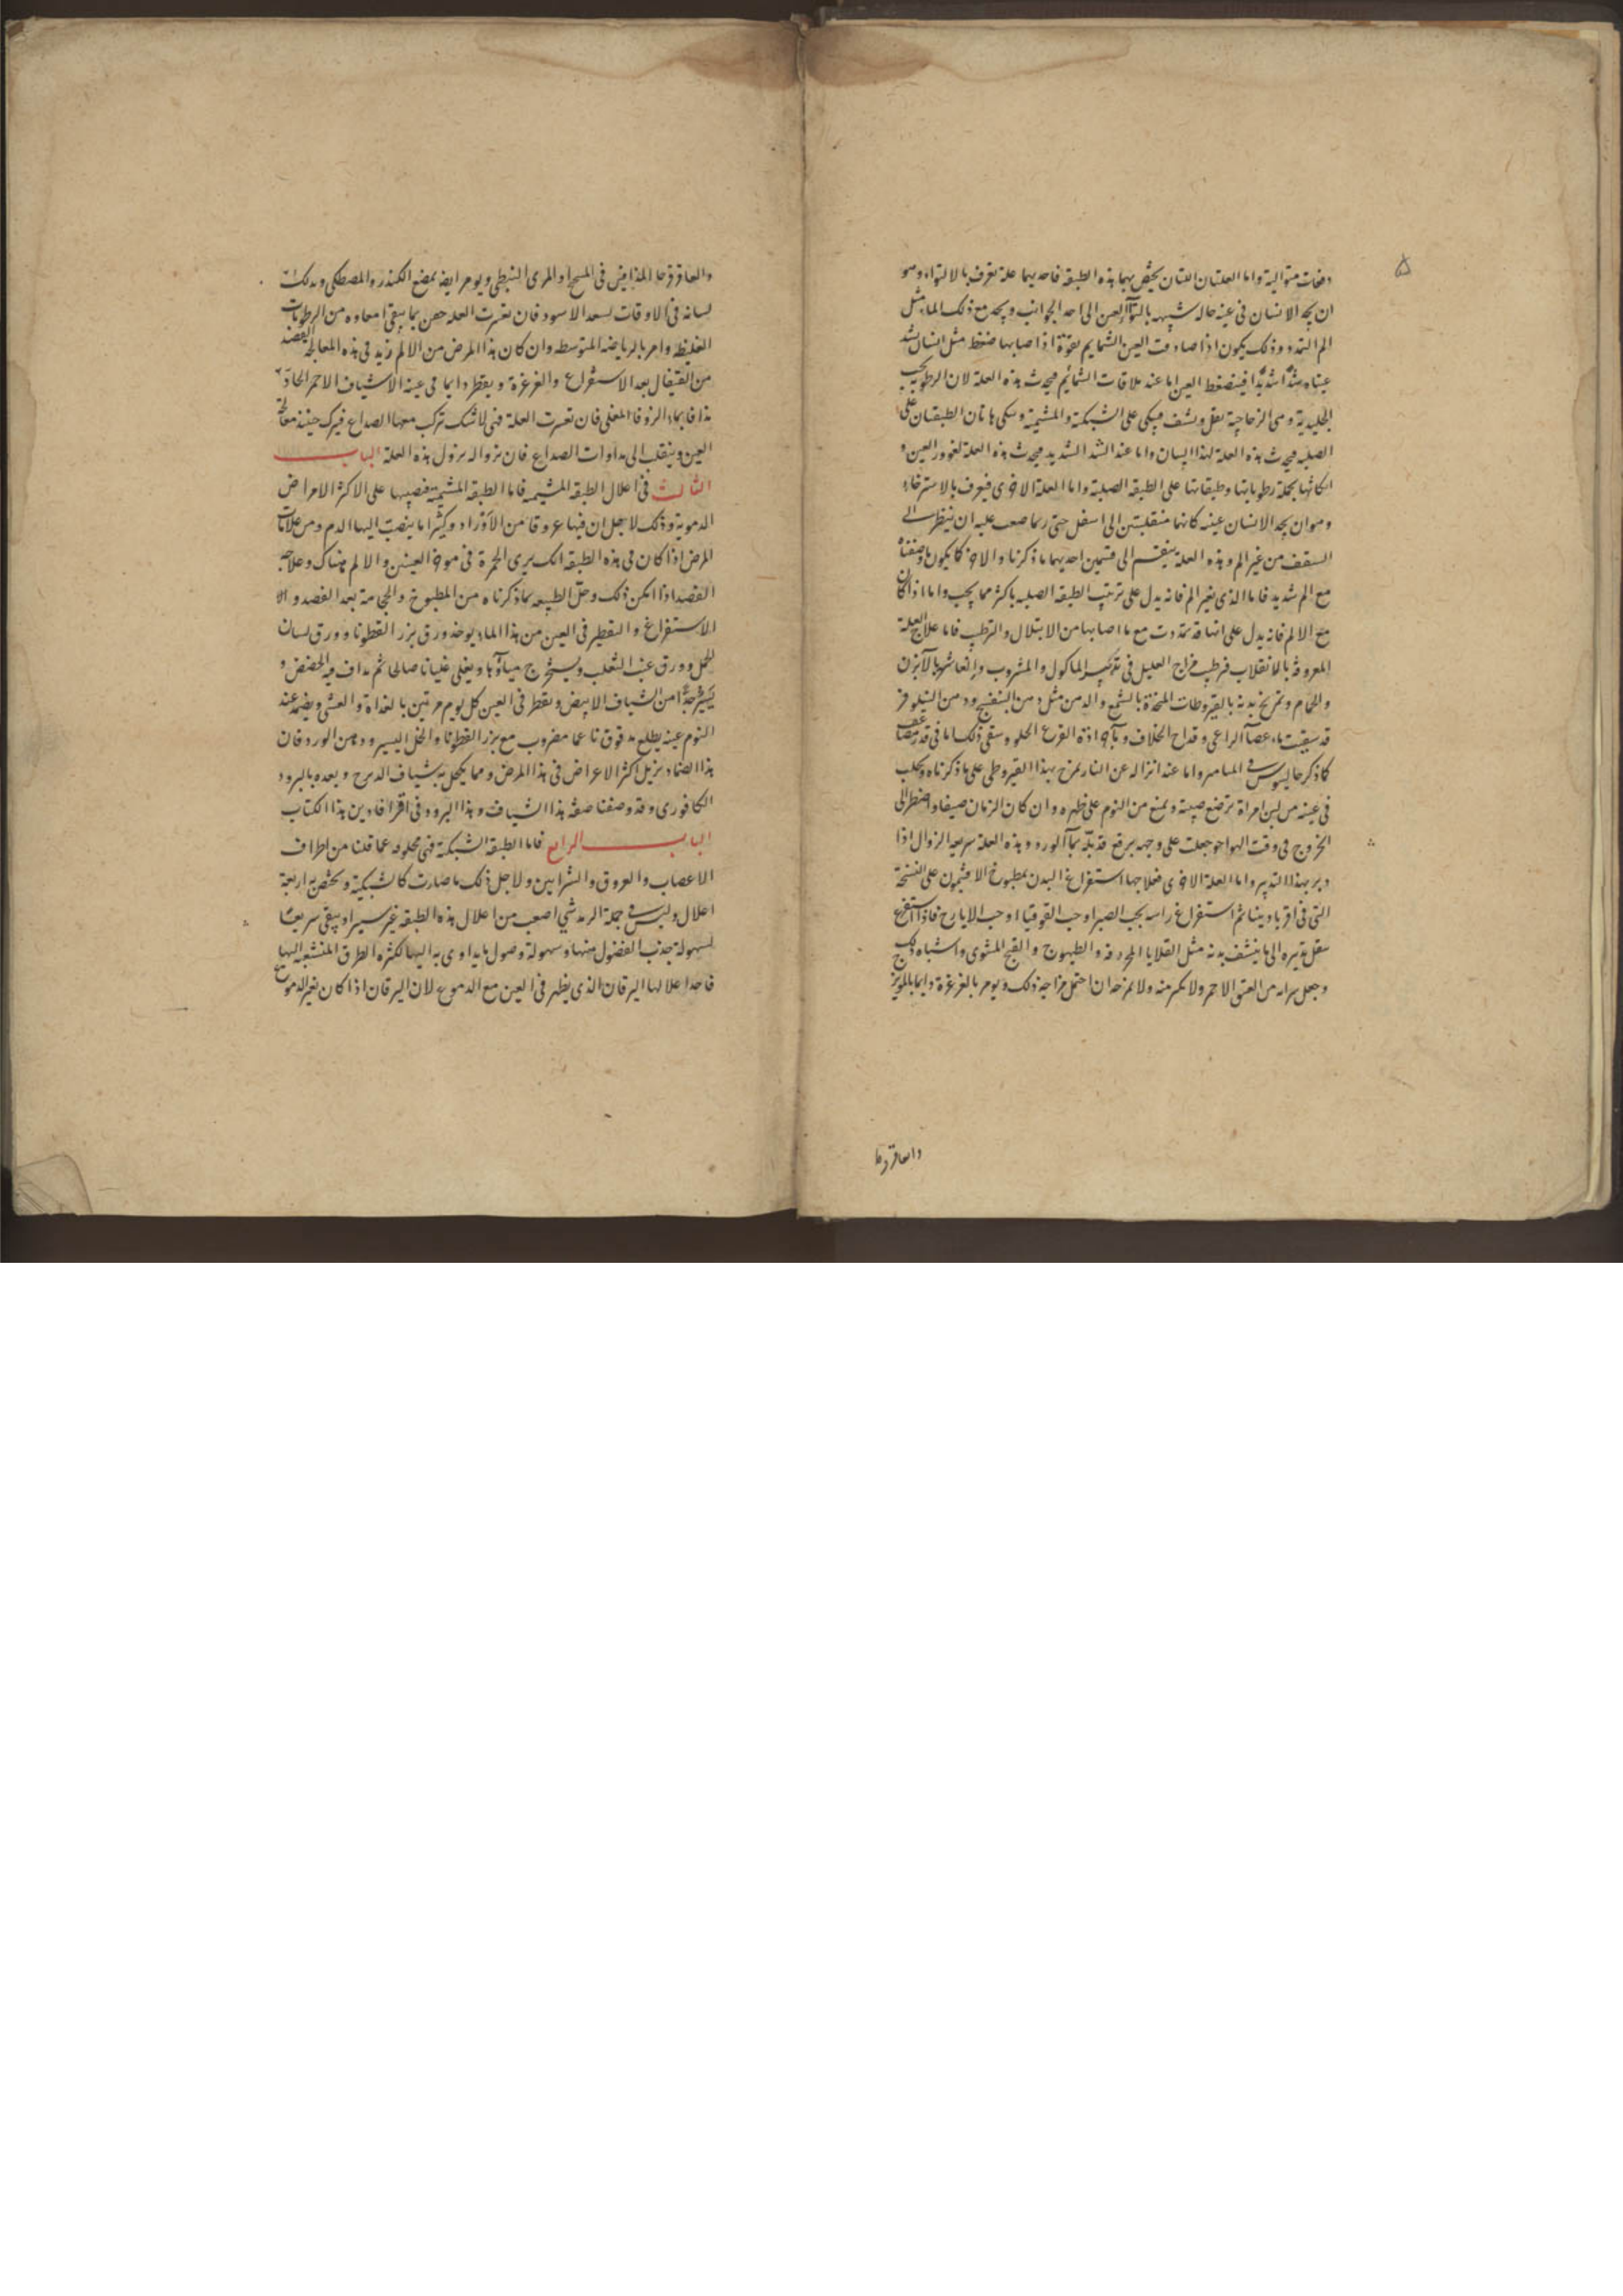 ۵
دفعات متوالية واما العلتان اللتان يختص بهما هذه الطبقة فاحديهما علة تعرف بالالتواء وهو
ان يجد الانسان فى عينه حالة شبيهه بالتواء العين الى احد الجوانب ويجد مع ذلك الماء مثل
الم التمدد وذلك يكون اذا صادفت العين الشمايم بقوة اذا صابها ضغط مثل انسان شد
عيناه شدّا شديدًا فينضغط العين اما عند ملاقات الشمائم فيحدث هذه العلة لان الرطوبة
الجليدية ومى الزجاجية تقل وينشف فيبكى على الشبكية والمشيمة وتبكى هاتان الطبقتان على
الصلبه فيحدث هذه العلة لهذا السان واما عند الشد الشديد فيحدث هذه العلة لغوور العين و
اتكائها بجملة رطوباتها وطبقاتها على الطبقة الصلبة واما العلة الاخرى فيعرف بالاسترخاء
وهو ان يجد الانسان عينه كانها منقلبتين الى اسفل حتى ربما صعب عليه ان ينظر الى
السقف من غير الم وهذه العلة ينقسم الى قسمين احديهما ما ذكرنا والاخر كا يكون ما وصفناه
مع الم شديد فاما الذى بغير الم فانه يدل على ترتيب الطبقه الصلبه باكثر مما يجب واما اذا كان
مع الالم فانه يدل على انها قد تمددت مع ما اصابها من الابتلال والترطب فاما علاج العلة
المعروفة بالانقلاب فرطب مزاج العليل فى تدبير الماكول والمشروب وانعاشه بالآبزن
والحمام وتمريخ بدنه بالقيروطات المتخذة بالشمع والدهن مثل دهن البنفسج ودهن النيلوفر
قد سقيت ماء عصا الراعى وقداح الخلاف وماء جرادة القرع الحلو وسقى ذلك اما فى قدر مضاعف
كا ذكر جالينوس فى الميامر واما عند انزاله عن النار تمرخ بهذا القيروطى على ما ذكرناه ويحلب
فى عينه من لبن امراة ترضع صبية ويمنع من النوم على ظهره وان كان الزمان صيفا واضطر الى
الخروج فى وقت الهواجر جعلت على وجهه برقع قد بلّه بماء الورد وهذه العلة سريعة الزوال اذا
دبر بهذا التدبير واما العلة الاخرى فعلاجها استفراغ البدن بمطبوخ الافتيمون على النسخة
التى فى اقرباديننا ثم استفراغ راسه بحب الصبر او حب القوقيا او حب الايارج فاذا استفرغ
نقل تدبيره الى ما ينشف بدنه مثل القلايا المحرفه والطيهوج والقبج المشوى واشباه ذلك
وجعل شرابه من العتيق الاحمر ولا يكثر منه ولا يمزجه ان احتمل مزاجه ذلك ويومر بالغرغرة دايما بالمويز
والعاقرقرحا
والعاقرقرحا المذابين فى الميبختج او المرى النبطى ويومر ايضا بمضغ الكندر والمصطكى ويدلك
لسانه فى الاوقات بسعد الاسود فان تعسرت العلة حقن بما ينقى امعاوه من الرطوبات
الغليظه وامر بالرياضة المتوسطه وان كان هذا المرض من الالم زيد فى هذه المعالجة الفصد
من القيفال بعد الاستفراغ والغرغرة ويقطر دايما فى عينه الاشياف الاحمر الحاد
مدافا بماء الزوفا المغلى فان تعسرت العلة فهى لاشك تركب معها الصداع فيترك حينئذ معالجة
العين وينقلب الى مداوات الصداع فان بزواله يزول هذه العلة البــاب
الثالث فى اعلال الطبقه المشيمه فاما الطبقه المشيمية يتغصبها على الاكثر الامراض
الدموية وذلك لاجل ان فيها عروقا من الاوراد وكثيرا ما ينصب اليها الدم ومن علامات
المرض اذا كان فى هذه الطبقه انك يرى الحمرة فى موخر العينين والالم هناك وعلاجه
الفصد اذا امكن ذلك وحل الطبيعه بما ذكرناه من المطبوخ والحجامة بعد الفصد و
الاستفراغ والتقطير فى العين من هذا الماء يوخذ ورق بزر القطونا وورق لسان
الحمل وورق عنب الثعلب ويستخرج مياؤها ويغلى غليانا صالحا ثم يداف فيه الحضض و
يسير جدًا من الشياف الابيض ويقطر فى العين كل يوم مرتين بالغداة والعشى ويضمد عند
النوم عينه بطلع مدقوق ناعما مضروب مع بزر القطونا والخل اليسير ودهن الورد فان
هذا الضماد يزيل اكثر الاعراض فى هذا المرض ومما يكحل به شياف الدرج وبعده بالبرود
الكافورى وقد وصفنا صفة هذا الشياف وهذا البرود فى اقرافادين هذا الكتاب
البــاب الرابع فاما الطبقة الشبكية فهى مخلوقه عما قلنا من اطراف
الاعصاب والعروق والشرايين ولاجل ذلك ما صارت كالشبكية ويختص به اربعة
اعلال وليس فى جملة الرمد شى اصعب من اعلال هذه الطبقه غير سير او يبقى سريعًا
لسهولة جذب الفضول منها وسهولة وصول ما يداوى به اليها لكثرة الطرق المنشعبه اليها
فاحد اعلالها اليرقان الذى يظهر فى العين مع الدموع لان اليرقان اذا كان بغير الدموع